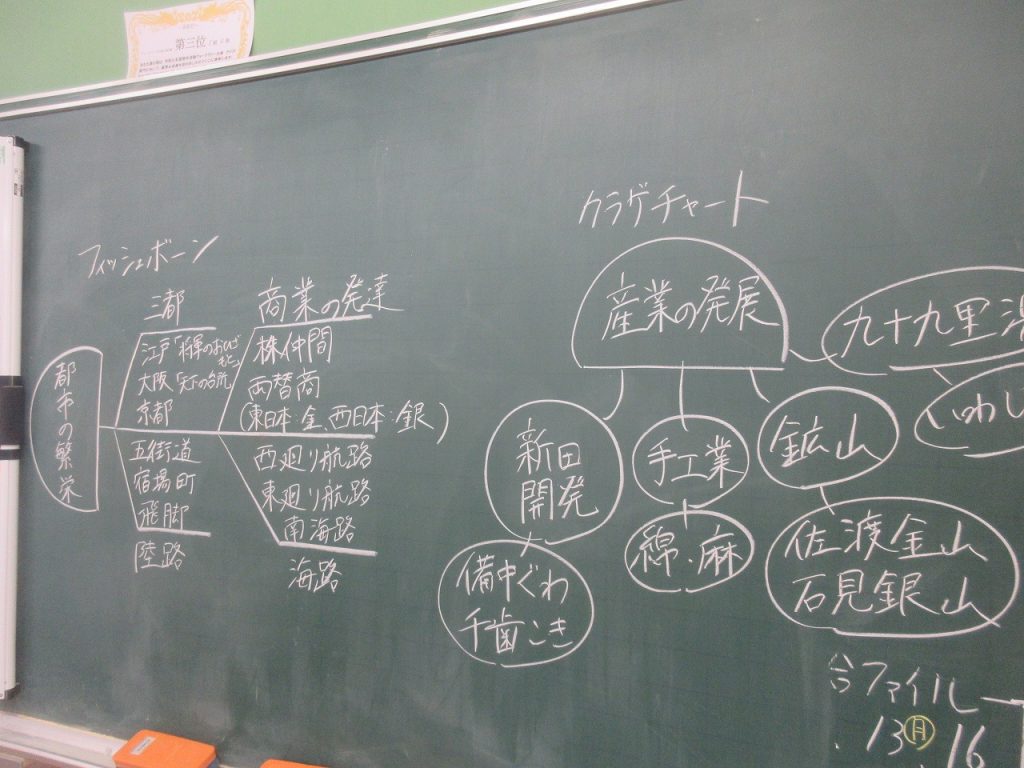 第三位
フィッシュボーン
三都
商業の発達
都市の繁栄
江戸「将軍のおひざもと」
大阪「天下の台所
京都
五街道
宿場町
飛脚
陸路
株仲間
両替商
(東日本:金、西日本:銀)
西廻り航路
東廻り航路
南海路
海路
クラゲチャート
産業の発展
九十九里
いわし
新田
開発
手工業
鉱山
備中ぐわ
千歯こき
綿・麻
佐渡金山
石見銀山
ファイル
13 月 16